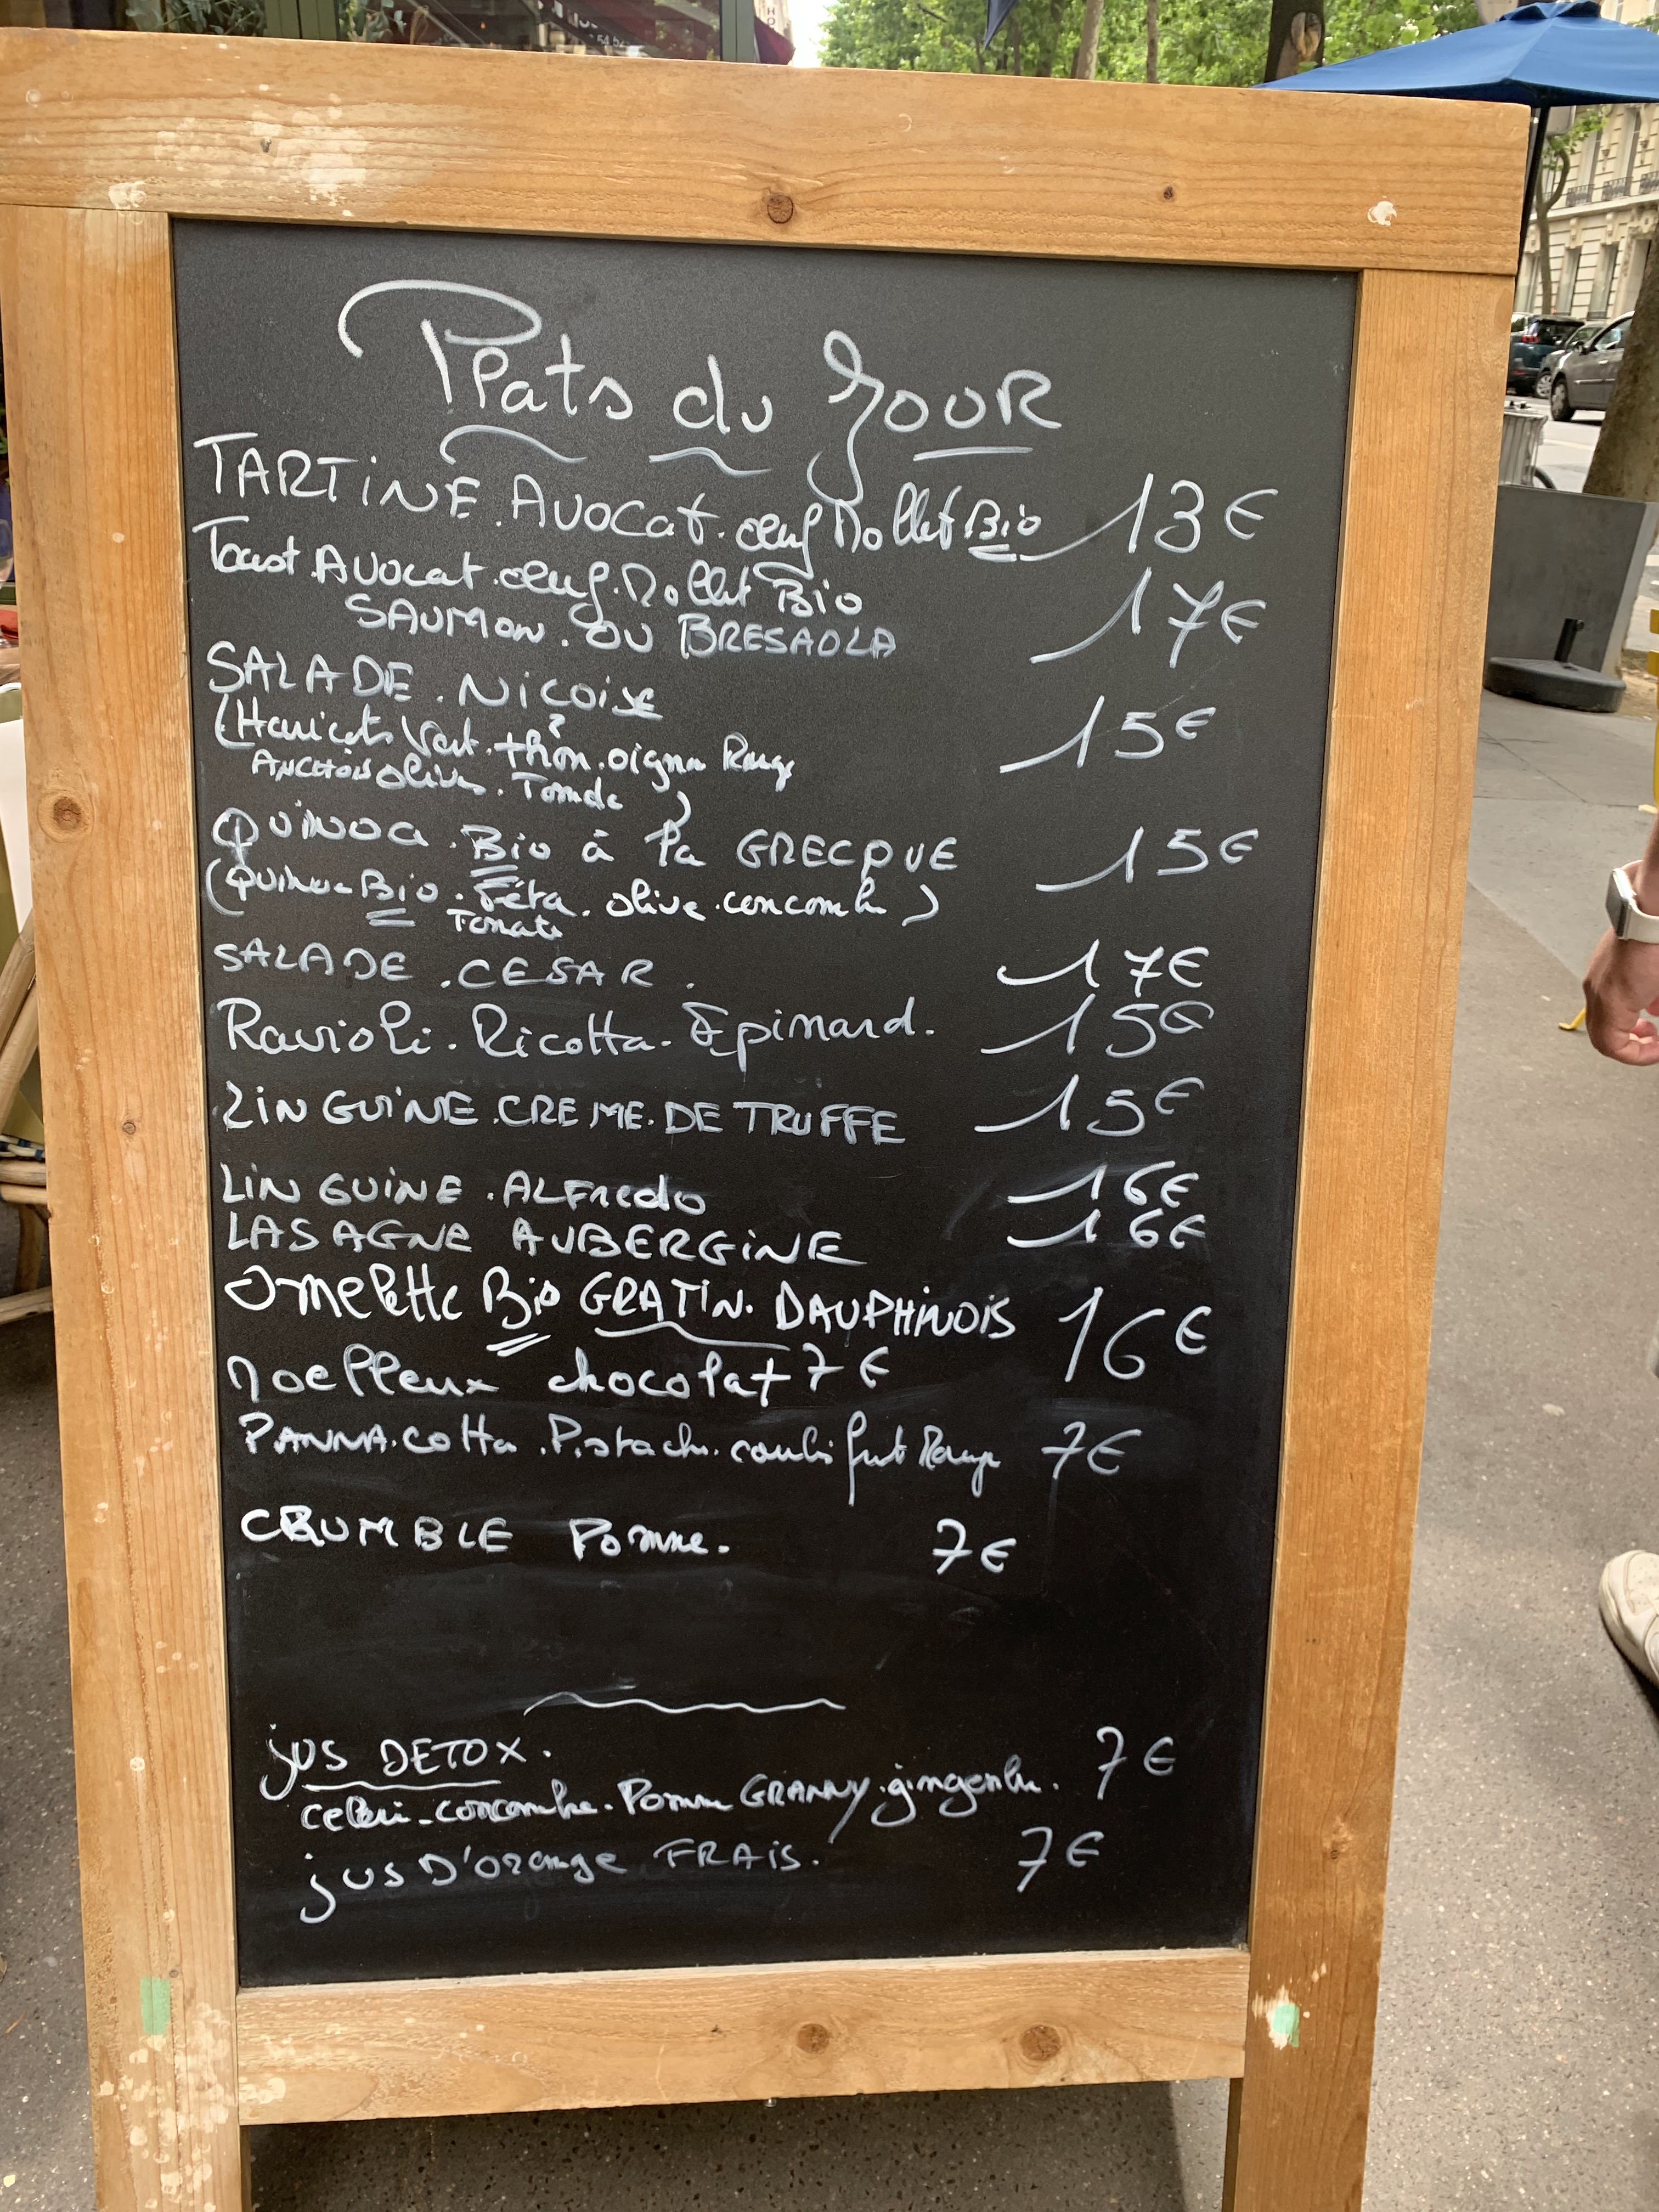 Plats du Jour
TARTiNE. Avocat. œuf Mollet Bio 13€
Toast. Avocat. œuf. Mollet Bio
SAUMON. OU BRESAOLA 17€
SALADE. NiCOiSE
(Haricots Vert. thon. oignon Rouge 15€
ANCHOIS olives. Tomate)
QUiNOa. Bio à la GRECQUE 15€
(Quinoa Bio. Féta. olive. concombre)
Tomate
SALADE. CESAR. 17€
Ravioli. Ricotta. Epinard. 15€
LiNGUiNE. CREME. DE TRUFFE 15€
LiNGUiNE. ALFredo 16€
LASAGNE AUBERGiNE 16€
Omelette Bio GRATiN. DAUPHiNOiS 16€
Moelleux chocolat 7€
PANNA. cotta. Pistache. coulis fruit Rouge 7€
CRUMBLE Pomme. 7€
jus DETOX. 7€
celeri. concombre. Pomme GRANNY. gingembre.
jus D'Orange FRAiS. 7€